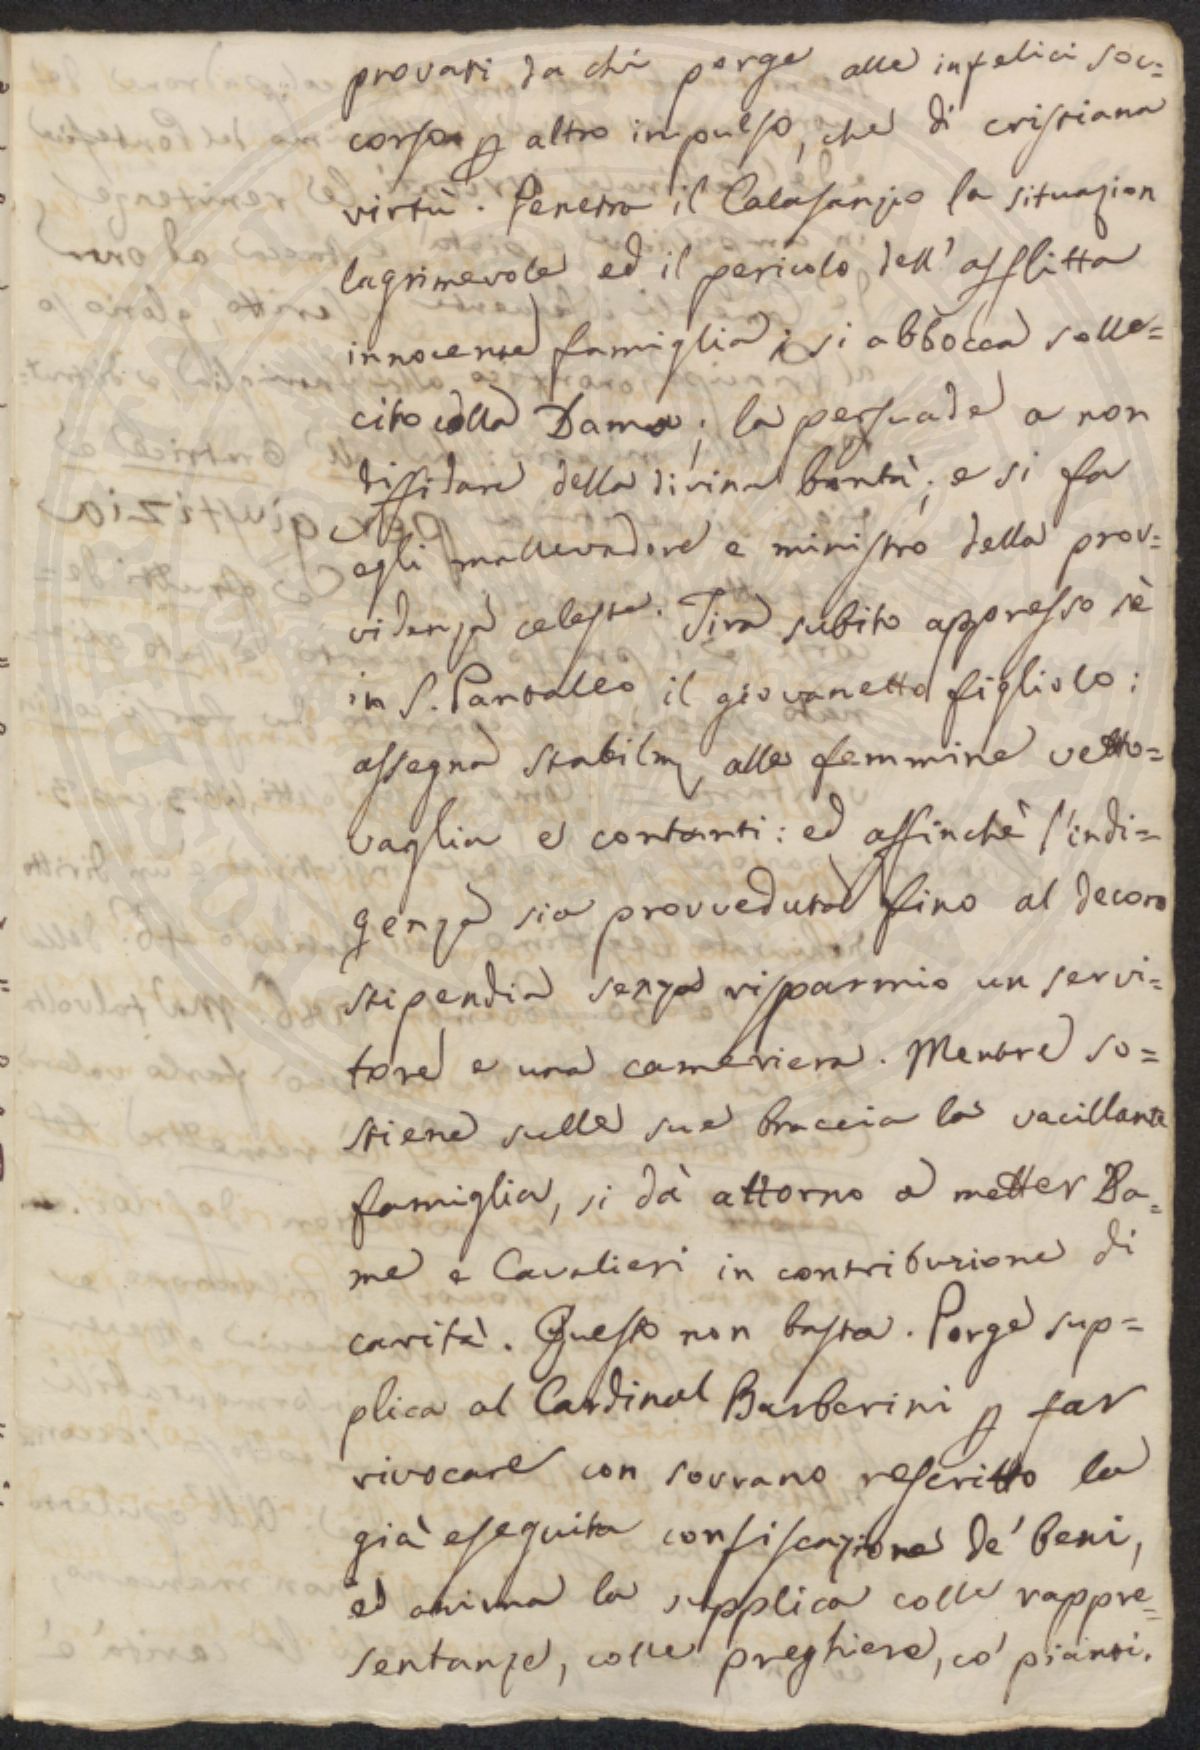 provati da chi porge alle infelici soc=
corso ꝑ altro impulso, che di cristiana
virtù. Penetra il Calasanzio la situazion
lagrimevole ed il pericolo dell' afflitta
innocente famiglia; si abbocca solle=
cito colla Dama; la persuade a non
diffidare della divina bontà; e si fa
egli mallevadore e ministro della prov=
videnza celeste. Tira subito appresso sè
in S. Pantaleo il giovanetto figliolo:
assegna stabilm alle femmine vetto=
vaglia e contanti: ed affinchè l'indi=
genza sia provveduta fino al decoro
stipendia senza risparmio un servi=
tore e una cameriera. Mentre so=
stiene sulle sue braccia la vacillante
famiglia, si dà attorno a metter Da=
me e Cavalieri in contribuzione di
carità. Questo non basta. Porge sup=
plica al Cardinal Barberini ꝑ far
rivocare con sovrano rescritto la
già eseguita confiscazione de' beni,
ed anima la supplica colle rappre=
sentanze, colle preghiere, co' pianti.